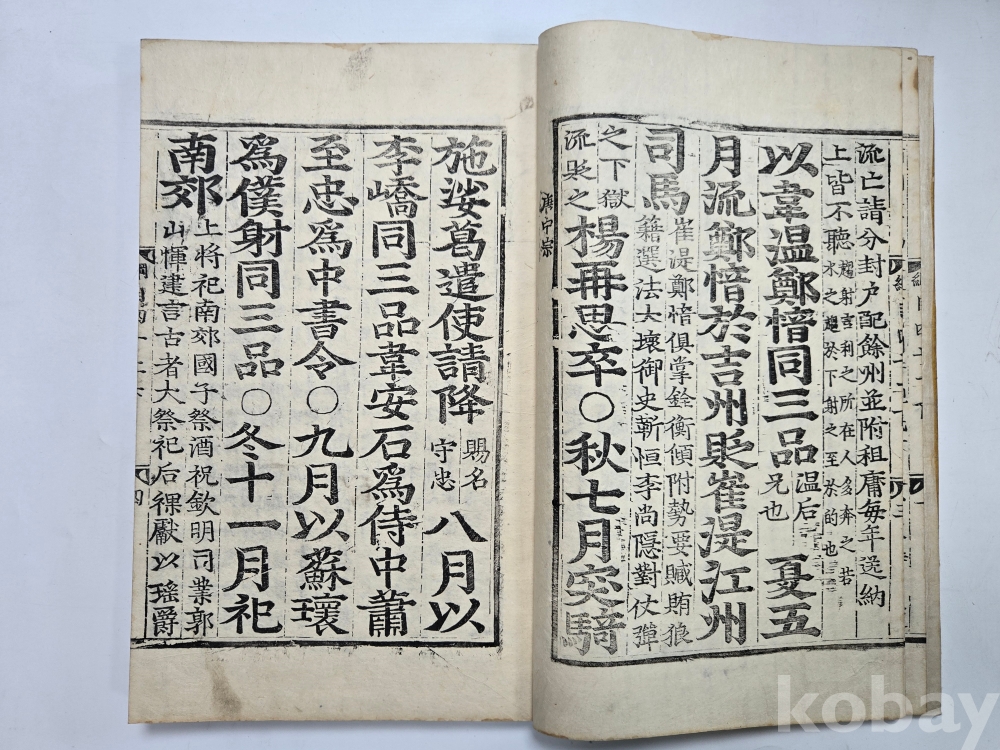 流亡請分封户配餘州並附租庸每年送納
上皆不聽
趨射言利之所在人多奔之若
水之趨於下謝之至於的也
以韋温鄭愔同三品
温后
兄也
夏五
月流鄭愔於吉州貶崔湜江州
司馬
崔湜鄭愔俱掌銓衡傾附勢要贓賄狼
籍選法大壞御史靳恒李尚隱對仗彈
之下獄
流貶之
楊再思卒○秋七月突騎
唐中宗
施娑葛遣使請降
賜名
守忠
八月以
李嶠同三品韋安石爲侍中蕭
至忠爲中書令○九月以蘇瓌
爲僕射同三品○冬十一月祀
南郊
上將祀南郊國子祭酒祝欽明司業郭
山惲建言古者大祭祀后祼獻以瑶爵
四
kobay